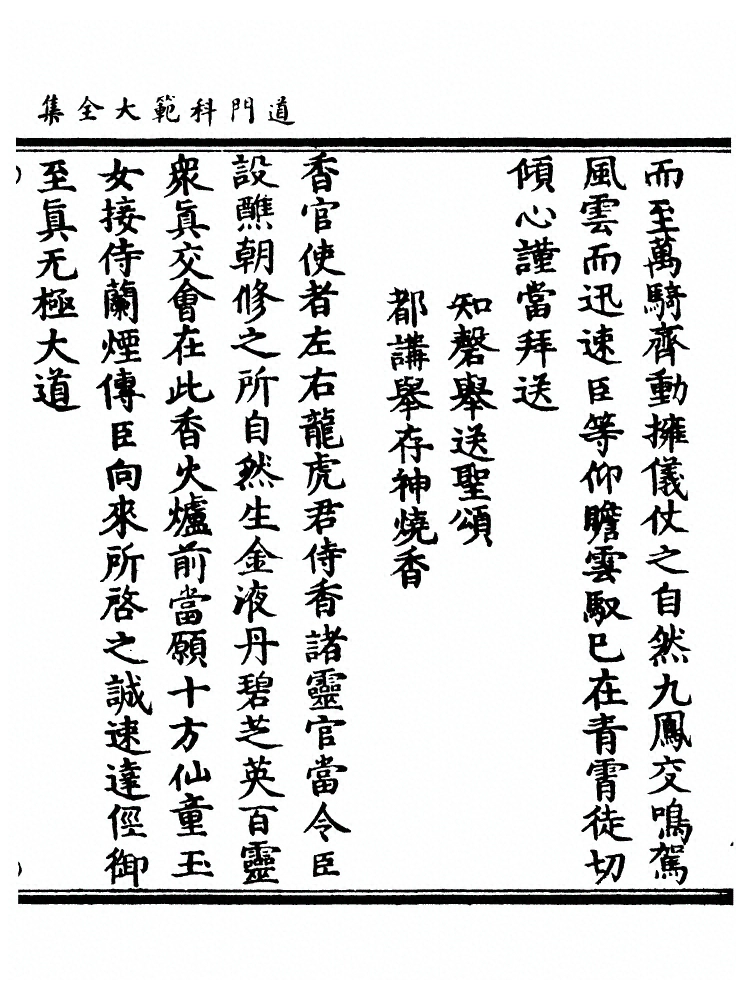 道門科範大全集
而至萬騎齊動擁儀仗之自然九鳳交鳴駕
風雲而迅速臣等仰瞻雲馭巳在青霄徒切
傾心謹當拜送
知磬舉送聖頌
都講舉存神燒香
香官使者左右龍虎君侍香諸靈官當令臣
設醮朝修之所自然生金液丹碧芝英百靈
衆眞交會在此香火爐前當願十方仙童玉
女接侍蘭煙傳臣向來所啓之誠速達徑御
至眞无極大道